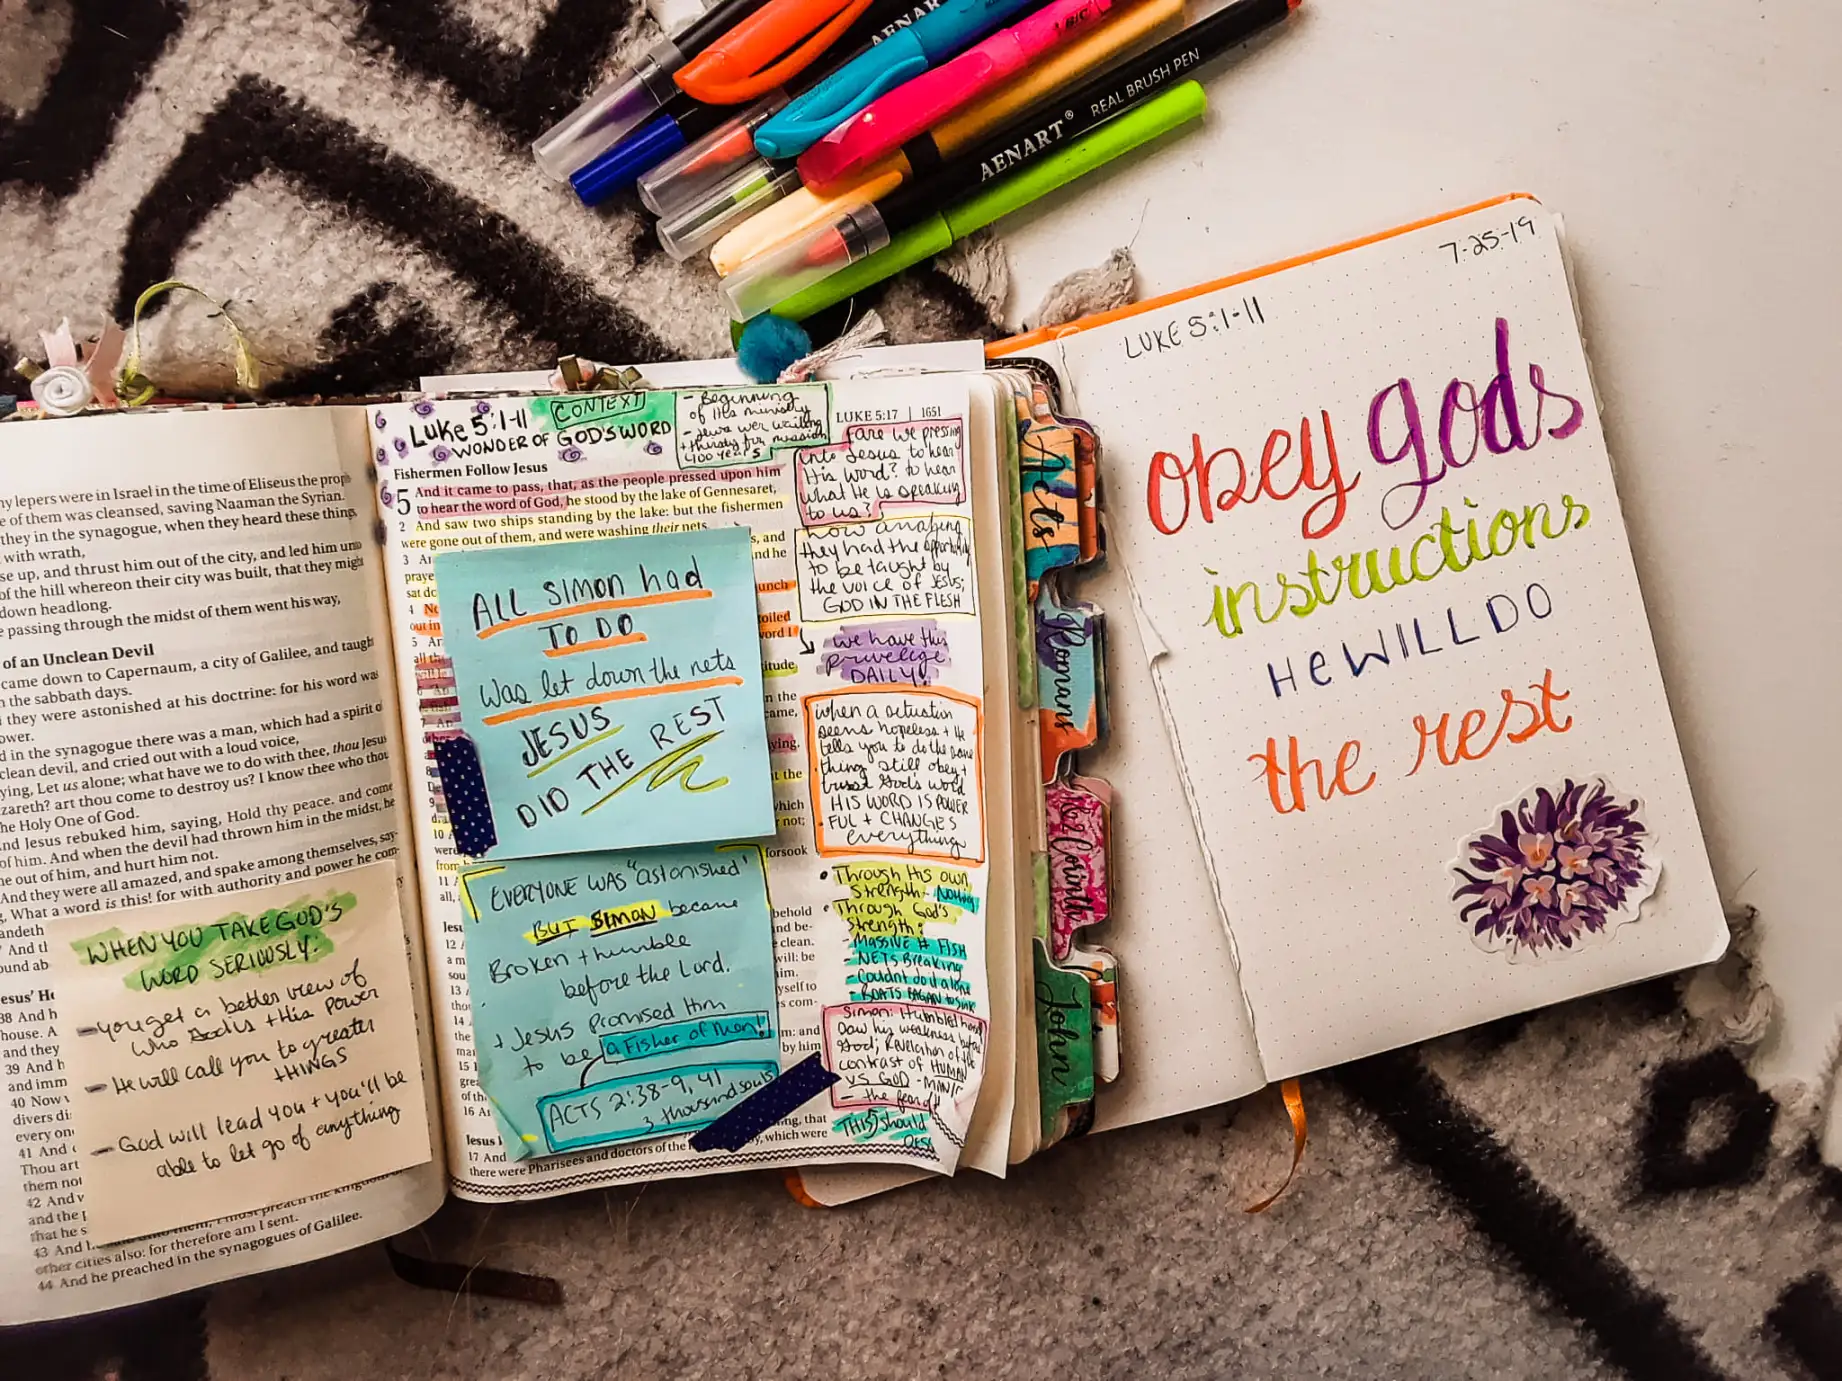 AENART
BIC
AENART® REAL BRUSH PEN
ny lepers were in Israel in the time of Eliseus the
e of them was cleansed, saving Naaman the Syrian.
they in the synagogue, when they heard these things,
with wrath,
se up, and thrust him out of the city, and led him
of the hill whereon their city was built, that they might
down headlong.
e passing through the midst of them went his way,
of an Unclean Devil
came down to Capernaum, a city of Galilee, and taught
n the sabbath days.
they were astonished at his doctrine: for his word was
ower.
d in the synagogue there was a man, which had a spirit of
clean devil, and cried out with a loud voice,
ying, Let us alone; what have we to do with thee, thou Jesus
zareth? art thou come to destroy us? I know thee who thou
he Holy One of God.
nd Jesus rebuked him, saying, Hold thy peace, and come
of him. And when the devil had thrown him in the midst, he
e out of him, and hurt him not.
And they were all amazed, and spake among themselves, say-
What a word is this! for with authority and power he com-
WHEN YOU TAKE GOD'S
WORD SERIOUSLY:
- You get a better view of
who God is + His Power
- He will call you to greater
THINGS
- God will lead you + you'll be
able to let go of anything
43 And
other cities also: for therefore am I sent.
44 And he preached in the synagogues of Galilee.
Luke 5:1-11
WONDER OF GOD'S WORD
CONTEXT
- Beginning
of His ministry
- Jews wer waiting
+ thirsty for messiah
400 years
LUKE 5:17 | 1651
Fishermen Follow Jesus
5 And it came to pass, that, as the people pressed upon him
to hear the word of God, he stood by the lake of Gennesaret,
2 And saw two ships standing by the lake: but the fishermen
were gone out of them, and were washing their nets.
ALL SIMON had
TO DO
Was let down the nets
JESUS
DID THE REST
EVERYONE WAS "astonished"
BUT SIMON became
Broken + humble
before the Lord.
+ Jesus Promised Him
to be a Fisher of Men!
ACTS 2:38-9, 41
3 thousand souls
there were Pharisees and doctors of the
which were
are we pressing
into Jesus to hear
His Word? to hear
what He is speaking
to us?
how amazing
they had the opportunity
to be taught by
the voice of JESUS;
GOD IN THE FLESH
we have this
privelige
DAILY!
when a situation
seems hopeless + He
tells you to do the same
thing still obey +
trust God's word
HIS WORD IS POWER
FUL + CHANGES
everything
• Through His own
Strength - Nothing
• Through God's
Strength:
- MASSIVE # FISH
- NETS Breaking
- Couldnt do it alone
- BOATS BEGAN to sink
Simon: Humbled
Saw his weakness before
God; Revelation of the
contrast of HUMAN
VS GOD
- the fear of
THIS should
Acts
Romans
1&2 Corinth
John
7-25-19
LUKE 5:1-11
obey gods
instructions
HE WILL DO
the rest